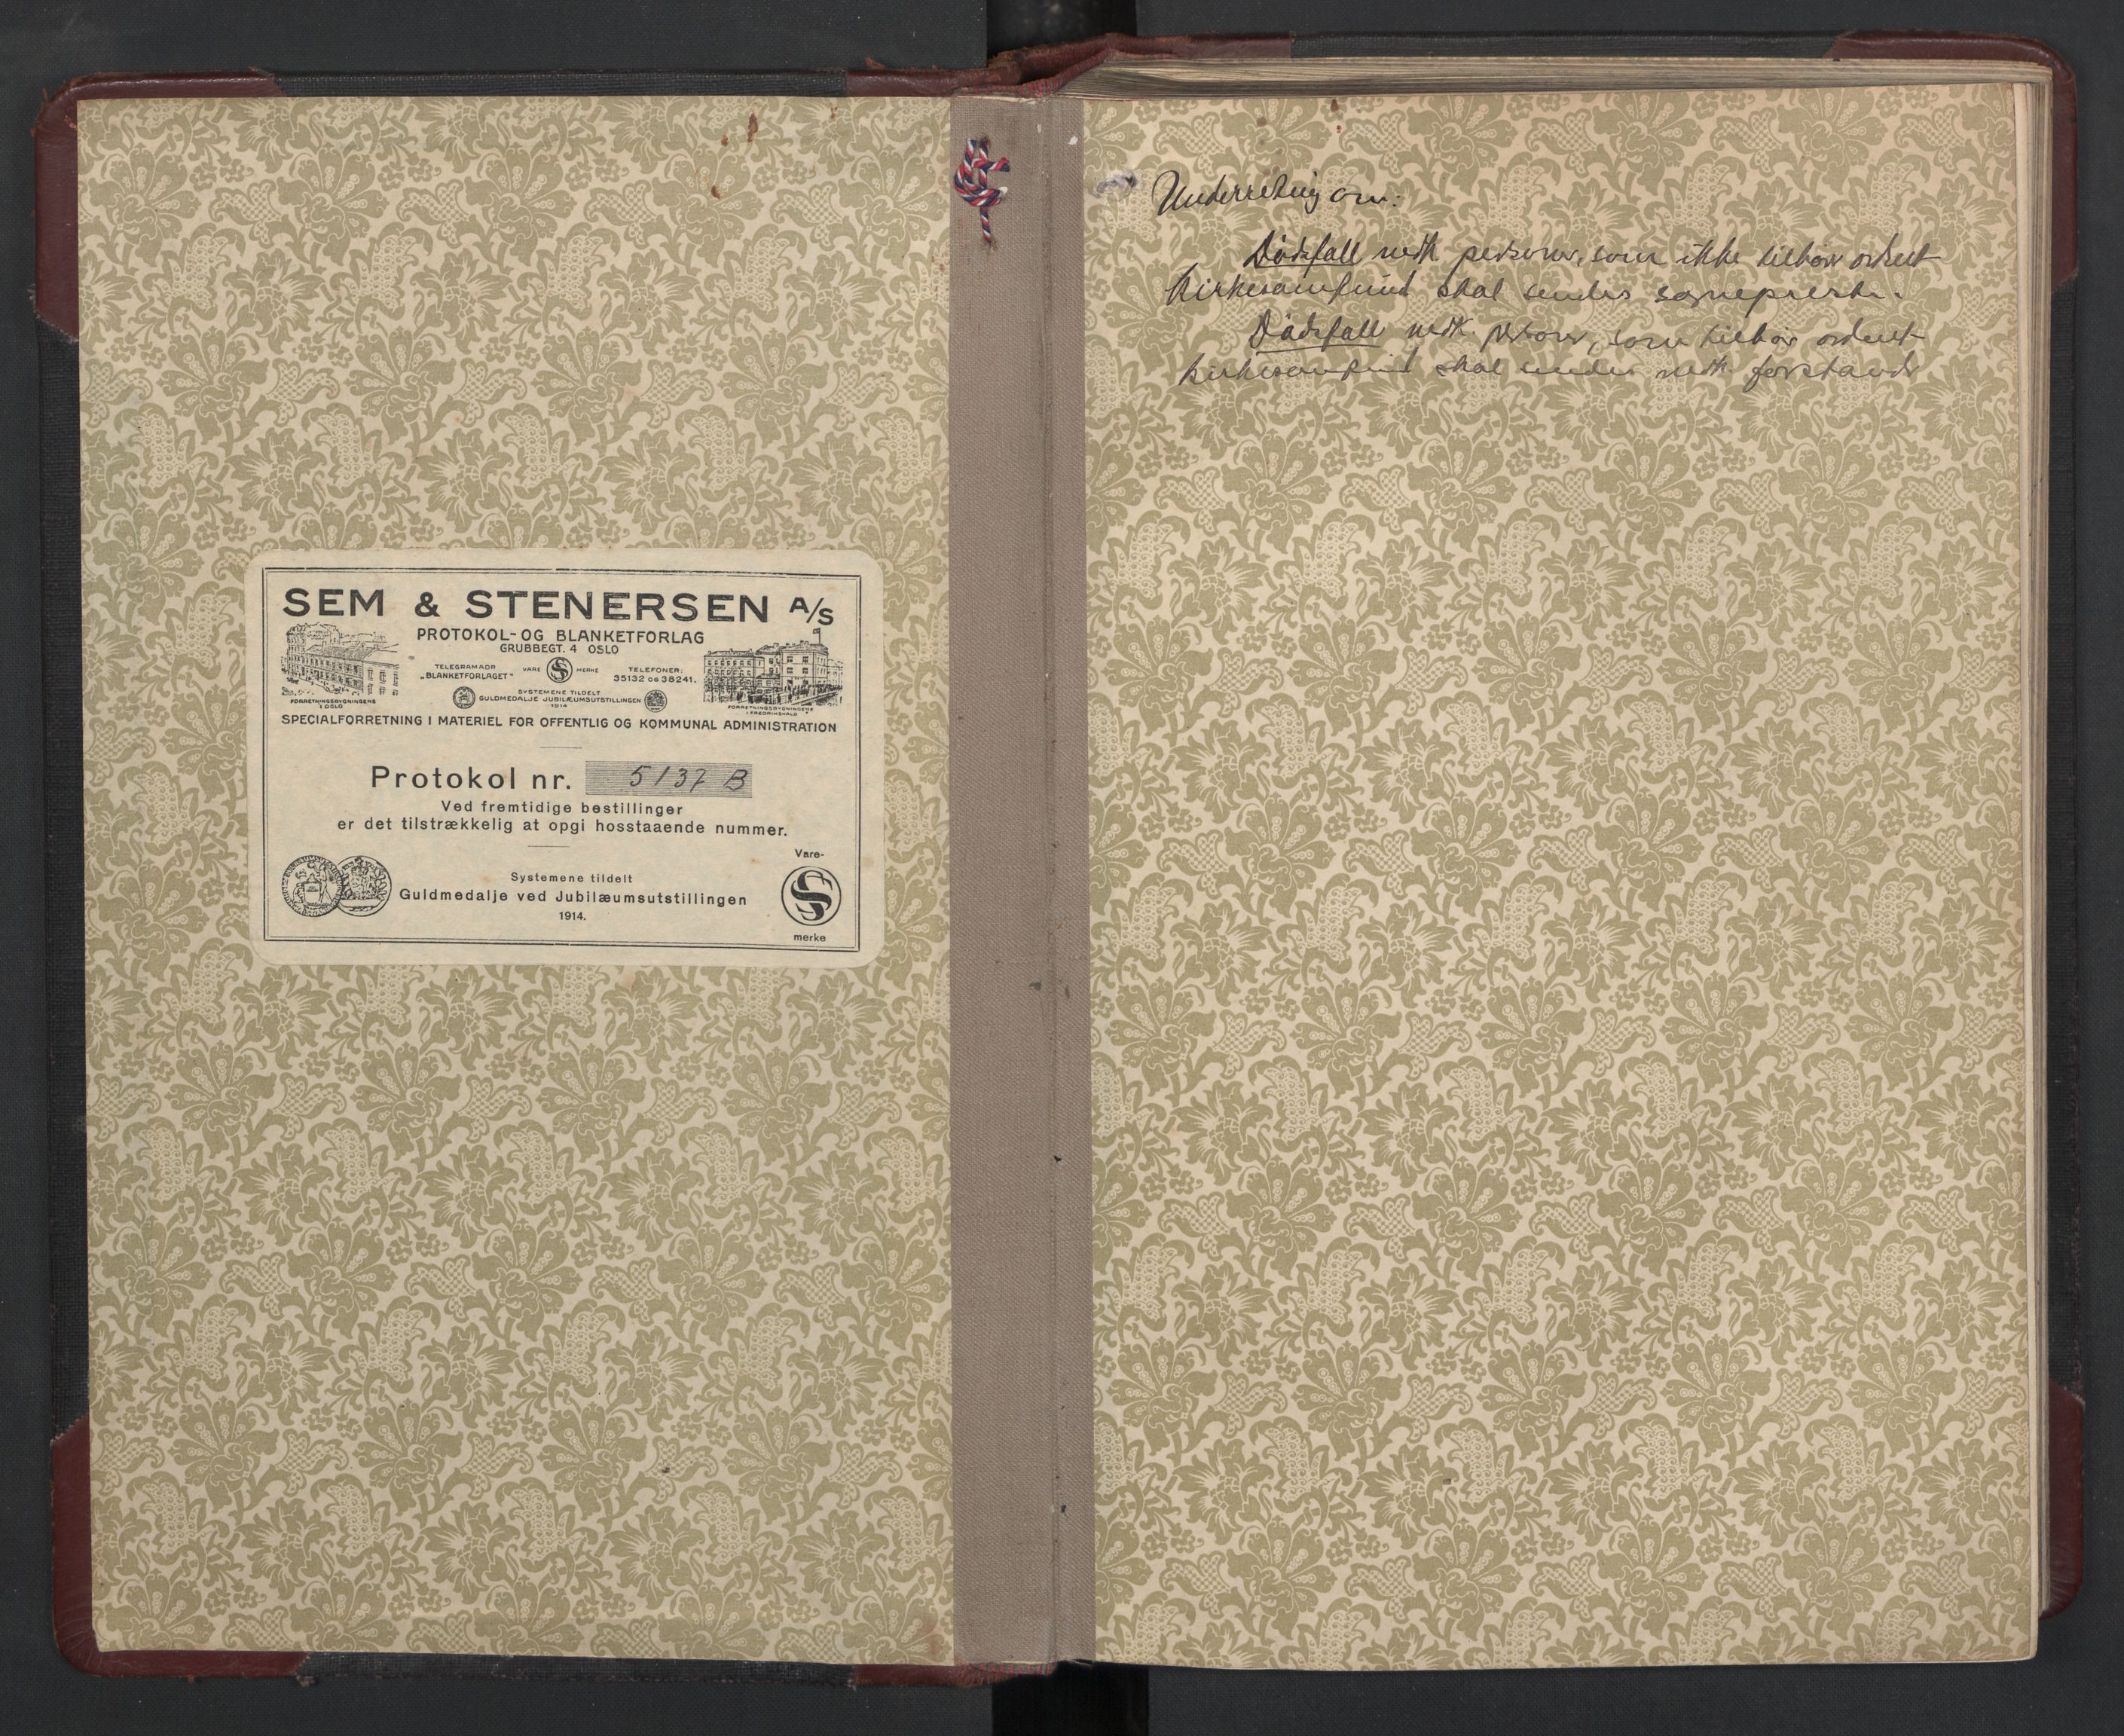 SEM & STENERSEN A/S
PROTOKOL- OG BLANKETFORLAG
GRUBBEGT. 4 OSLO
TELEGRAMADR
„BLANKETFORLAGET"
VARE S MERKE
TELEFONER:
35132 OG 38241.
SYSTEMENE TILDELT
GULDMEDALJE JUBILÆUMSUTSTILLINGEN
1914
FORRETNINGSBYGNINGENE
I OSLO
FORRETNINGSBYGNINGENE
I FREDRIKSHALD
SPECIALFORRETNING I MATERIEL FOR OFFENTLIG OG KOMMUNAL ADMINISTRATION
Protokol nr. 5137 B
Ved fremtidige bestillinger
er det tilstrækkelig at opgi hosstaaende nummer.
Systemene tildelt
Guldmedalje ved Jubilæumsutstillingen
1914.
Vare-
S
merke
Underretning om:
Dødsfall vedk personer, som ikke tilhører
Kirkesamfund skal sendes sogneprest.
Dødsfall vedk. person, som tilhør
kirkesamfund skal sendes vedk forstand